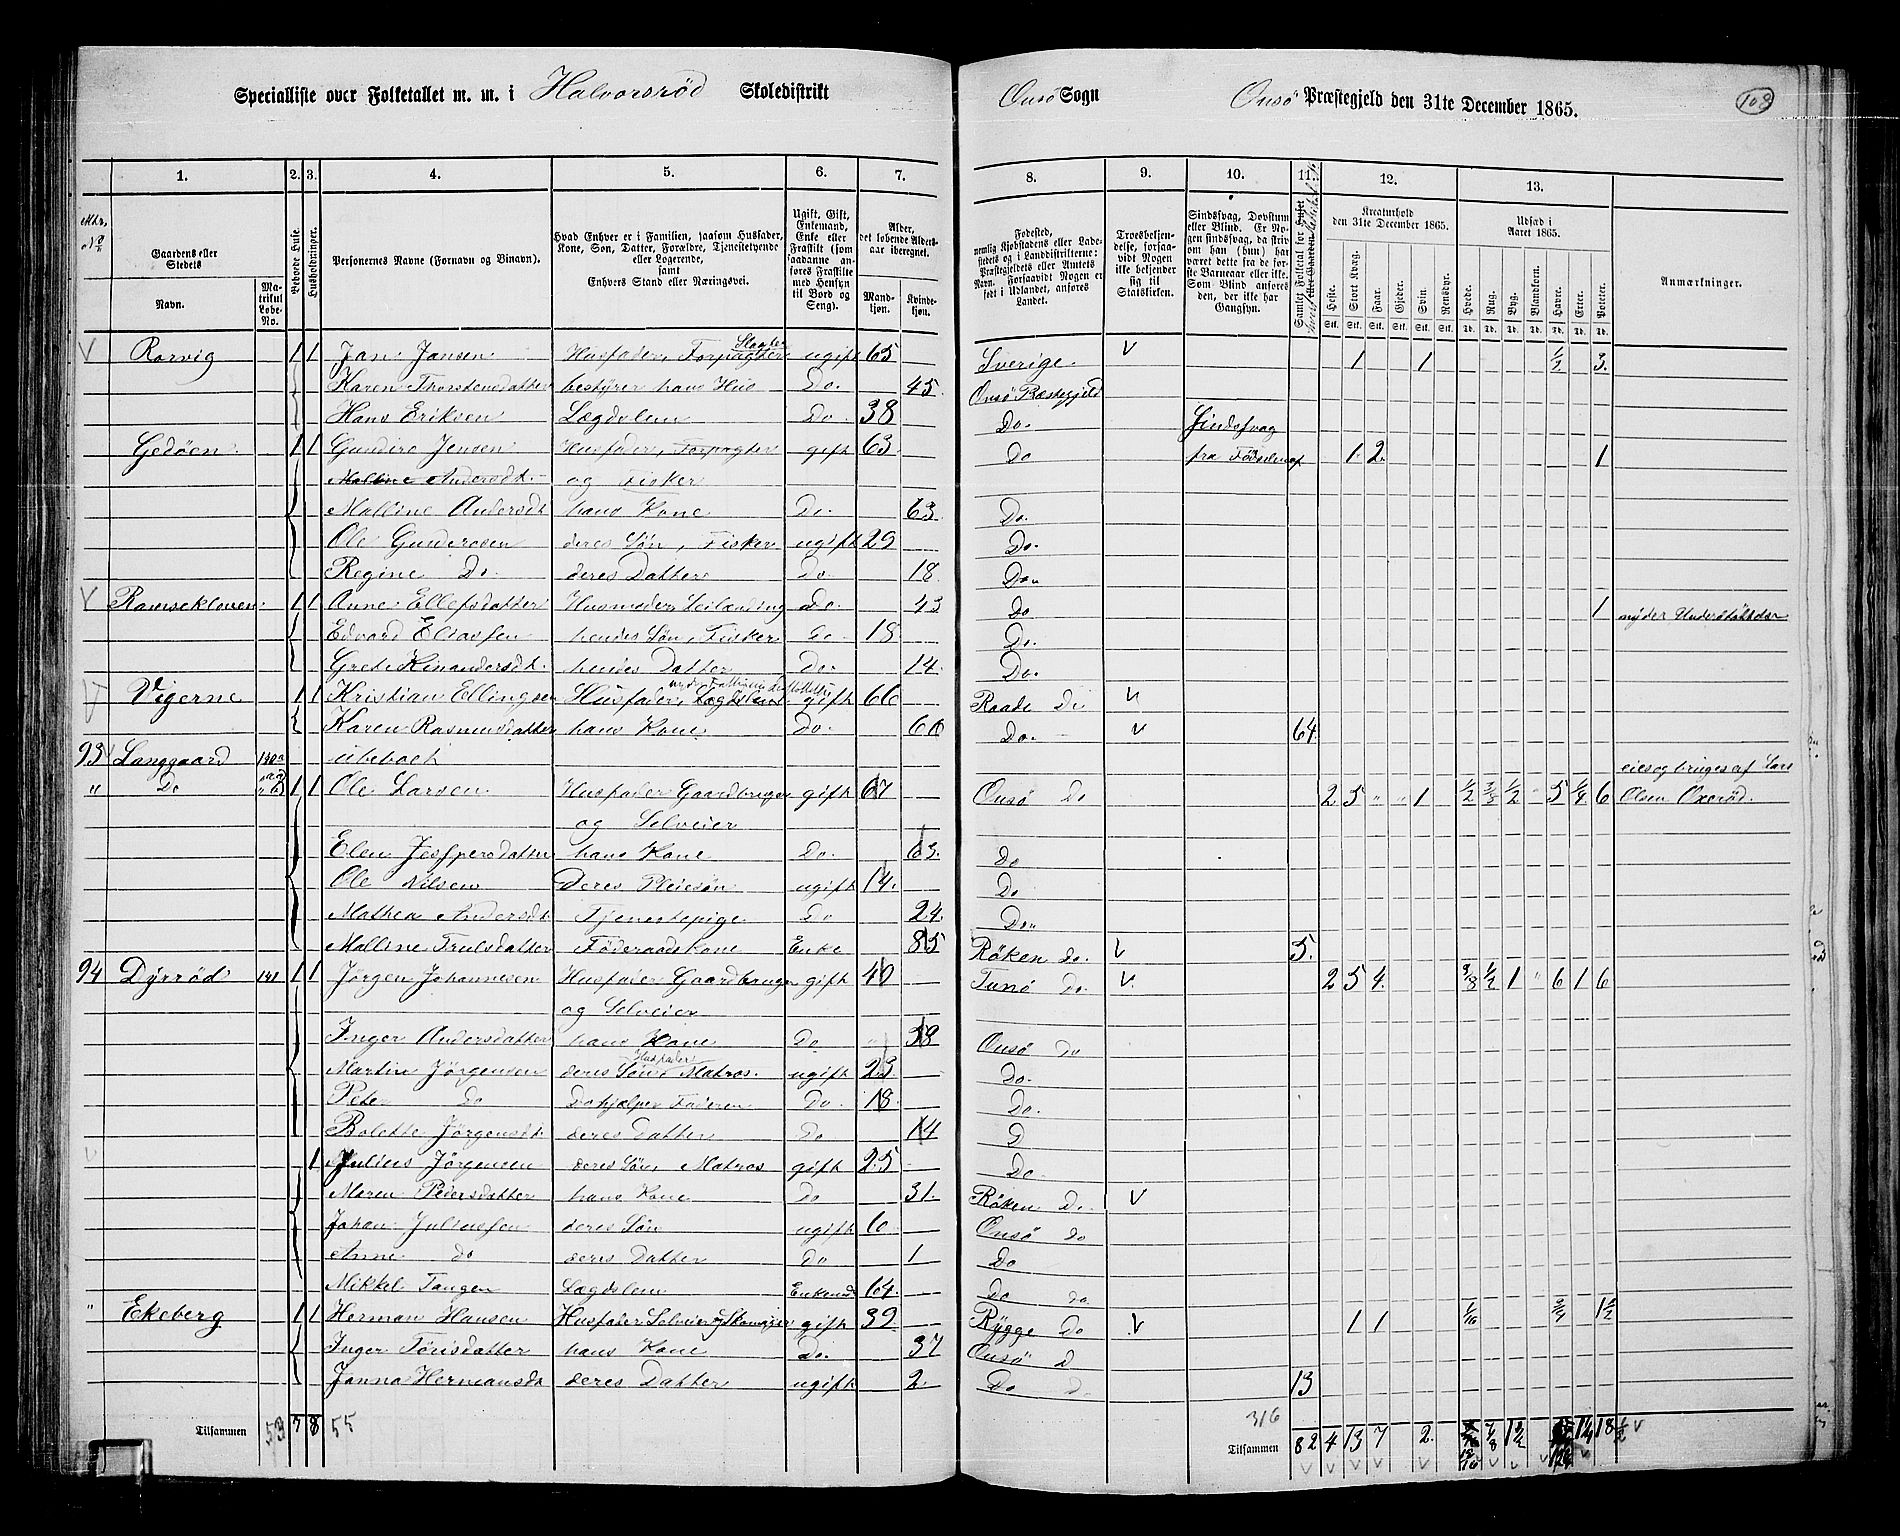 Specialliste over Folketallet m. m. i Halvorsröd Skoledistrikt
Onsö Sogn Onsö Præstegjeld den 31te December 1865. 108
1. 2. 3. 4. 5. 6. 7. 8. 9. 10. 11. 12. 13.
Gaardens eller Stedets
Navn. Matrikul Løbe-No.
Beboede Huse.
Husholdninger.
Personernes Navne (Fornavn og Binavn).
Hvad Enhver er i Familien, saasom Husfader, Kone, Søn, Datter, Forældre, Tjenestetyende eller Logerende, samt Enhvers Stand eller Næringsvei.
Ugift, Gift, Enkemand, Enke eller Fraskilt (som saadanne anføres Fraskilte med Hensyn til Bord og Seng).
Alder, det løbende Aldersaar iberegnet.
Mandkjøn. Kvindekjøn.
Fødested, nemlig Kjøbstadens eller Ladestedets og i Landdistrikterne: Præstegjeldets eller Amtets Navn. Forsaavidt Nogen er født i Udlandet, anføres Landet.
Troesbekjendelse, forsaavidt Nogen ikke bekjender sig til Statskirken.
Sindssvag, Døvstum eller Blind. Er Nogen sindssvag, da striv om han (hun) har været dette fra de første Barneaar eller ikke. Som Blind anføres den, der ikke har Gangsyn.
Samlet Folketal for
Kreaturhold den 31te December 1865.
Heste. Stort Kvæg. Faar. Gjeder. Svin. Rensdyr.
Udsæd i Aaret 1865.
Hvede. Rug. Byg. Blandkorn. Havre. Erter. Poteter.
Anmærkninger.
Rorvig 1 1 Jan Jansen Husfader, Forpagter Slagter ugift 65 Sverige V 1 1 1/2 3
Karen Thorstensdatter bestyrer hans Hus Do. 45 Onsö Præstegjeld
Hans Eriksen Lægdslem Do. 38 Do. Sindssvag
Gedöen 1 1 Gunders Jensen Husfader, Forpagter gift 63 Do fra Födselen af 1 2 1
Malline Andersdt. og Fisker
Malline Andersdt hans Kone Do. 63 Do.
Ole Gundersen deres Sön, Fisker ugift 29 Do.
Regine Do. deres Datter Do. 18 Do.
Ramsekloven 1 1 Anne Ellefsdatter Husmoder Do. 43 Do 1 nyder Understöttelse
Edvard Eliassen hendes Sön, Fisker Do 18 Do.
Grete Kinandersdt. hendes Datter Do. 14 Do.
Vigerne 1 1 Kristian Ellingsen Husfader, Lægdslem gift 66 Raade Do V
Karen Rasmusdatter hans Kone Do. 60 Do. V 64
93 Langgaard 140a ubeboet eies og bruges af Lars
" Do 1 1 Ole Larsen Husfader Gaardbruger gift 67 Onsö Do 2 5 " " 1 1/2 1/2 " 5 1/4 6 Olsen Oxeröd.
og Selveier
Elen Jesspersdatter hans Kone Do. 63 Do
Ole Nilsen Deres Pleiesön ugift 14. Do
Mathea Andersdt. Tjenestepige Do 24. Do
Malline Trulsdatter Föderaadskone Enke 85 Röken do. V 5.
94 Dyrröd 141 1 1 Jörgen Johannesen Husfader Gaardbruger gift 40 Tunö do. V. 2 5 4. 1/2 1 " 6 1 6
og Selveier
Inger Andersdatter hans Kone Do 38 Onsö do
Martin Jörgensen deres Sön, Matros. Husfader ugift 23 Do.
Peter Do Do hjælper Faderen Do 18 Do.
Bolette Jörgensdt. deres Datter Do 14 D
1 Julius Jörgensen deres Sön, Matros gift 25 Do
Maren Pedersdatter hans Kone Do 31. Röken D. V
Johan Juliussen deres Sön ugift 6 Onsö do
Anne Do deres Datter Do 1 Do
Mikkel Tangen Lægdslem Enkemd 64. Do do
" Ekeberg 1 1 Herman Hansen Husfader Selveier og Skomager gift 39 Rygge Do V 1 1 1/16 3/4 1 1/2
Inger Törisdatter hans Kone Do. 37 Onsö D
Janna Hermansdt deres Datter ugift 2. Do D 13
Tilsammen 53 7 8 55 316 Tilsammen 82 4 13 7 2. 7/8 1 1/2 1 1/4 18 1/2